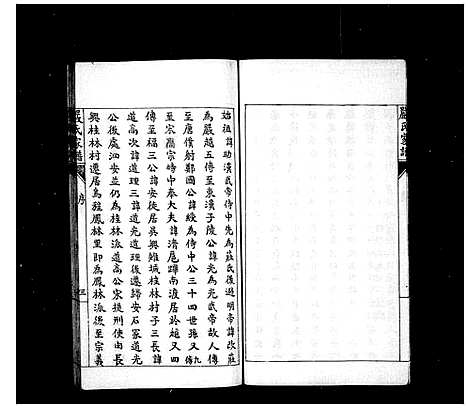 嚴氏家譜
始祖諱助漢武帝侍中先為莊氏後避明帝諱改莊
為嚴越五傳至東漢子陵公諱光為光武帝故人傳
至唐僕射鄭國公諱綬為侍中公三十四世孫又九傳
至宗高宗時中奉大夫諱清扈蹕南渡居於越又四
傳至福三公諱安徙居吳興雉城桂林村子三長諱
道高次諱道理三諱道光道理後遷歸安石冢道光
公後處泗安並仍為桂林派道高公宋提刑使由長
興桂林村遷居烏程鳳林里即為鳳林派後至宗義
嚴氏家譜
序